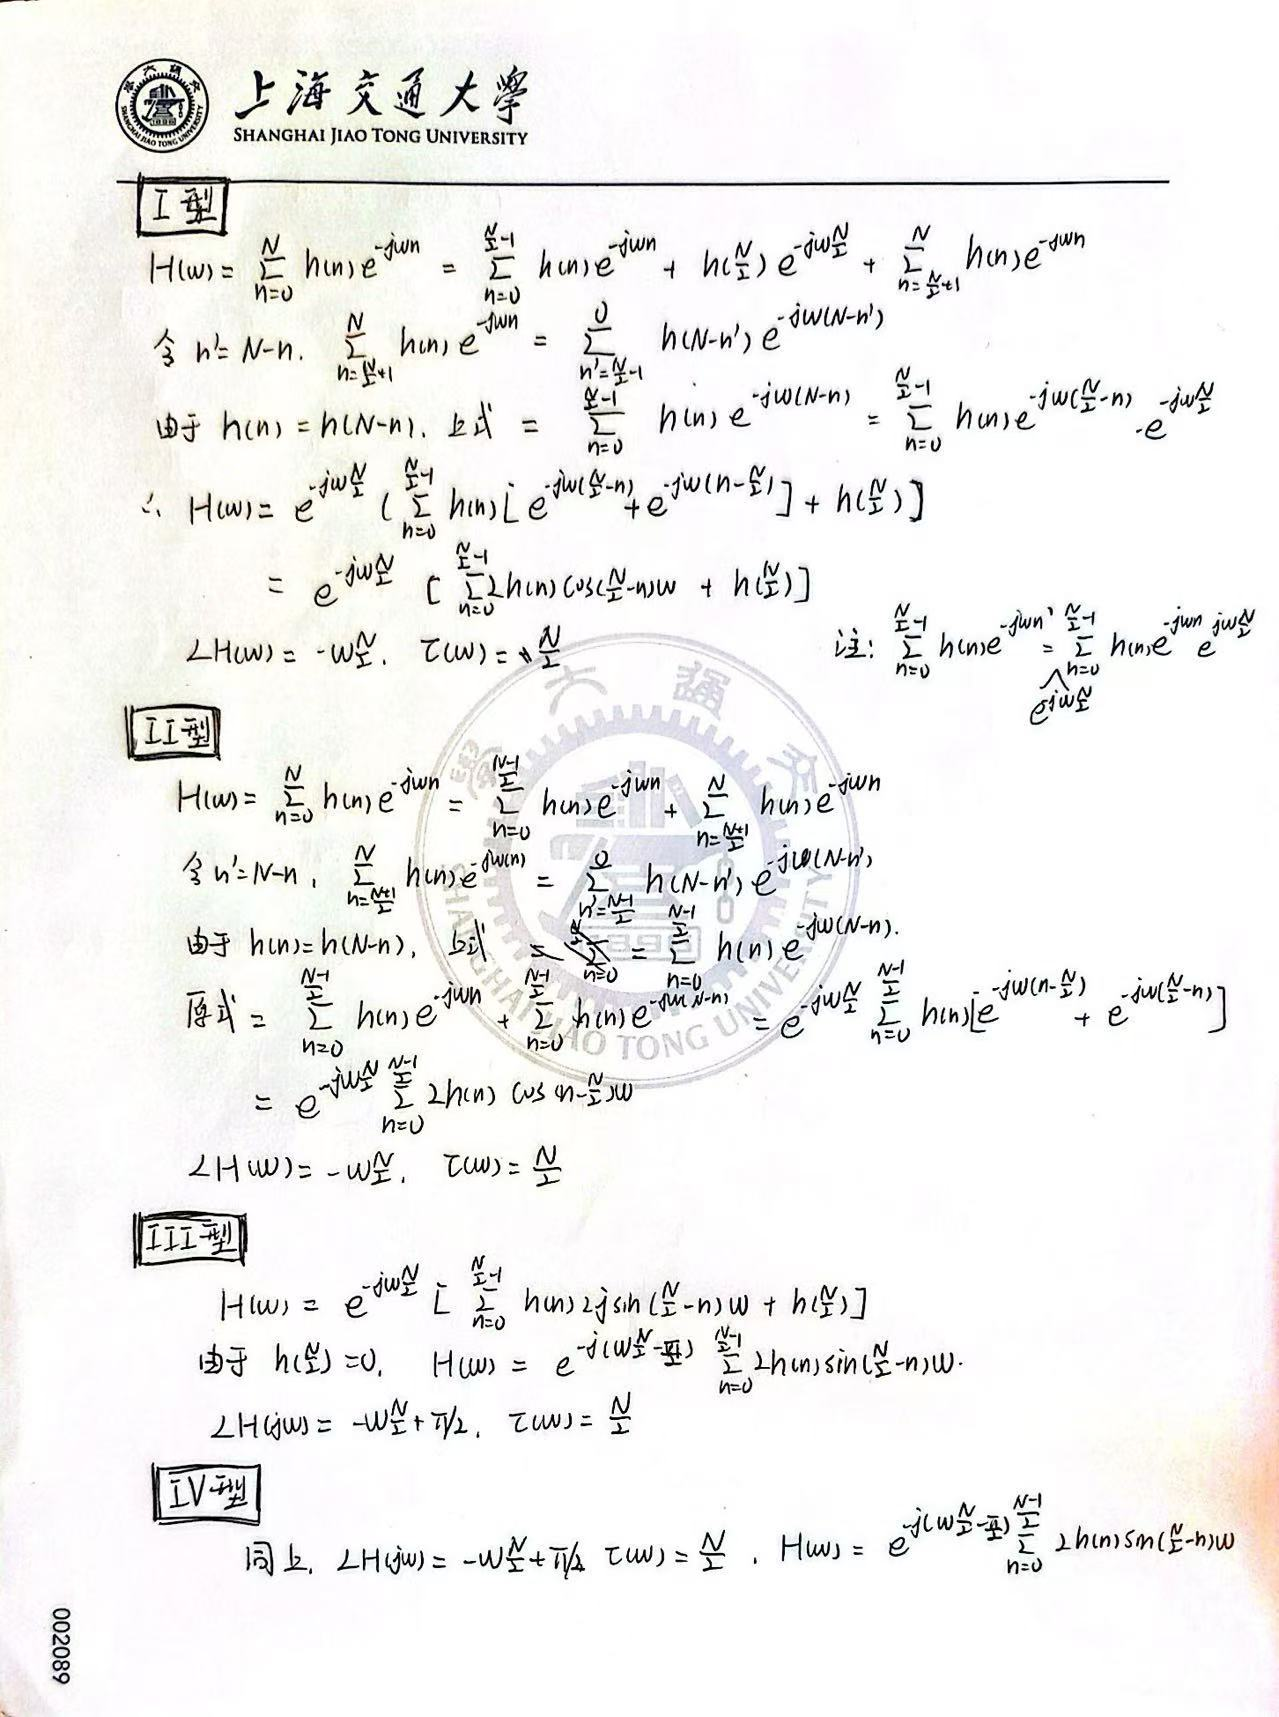 上海交通大學
SHANGHAI JIAO TONG UNIVERSITY
I型
H(w) = ∑_{n=0}^{N} h(n)e^{-jwn} = ∑_{n=0}^{N/2-1} h(n)e^{-jwn} + h(N/2)e^{-jwN/2} + ∑_{n=N/2+1}^{N} h(n)e^{-jwn}
令 n'=N-n. ∑_{n=N/2+1}^{N} h(n)e^{-jwn} = ∑_{n'=N/2-1}^{0} h(N-n')e^{-jw(N-n')}
由于 h(n)=h(N-n). 上式 = ∑_{n=0}^{N/2-1} h(n)e^{-jw(N-n)} = ∑_{n=0}^{N/2-1} h(n)e^{-jw(N/2-n)}·e^{-jwN/2}
∴ H(w) = e^{-jwN/2} (∑_{n=0}^{N/2-1} h(n)[e^{-jw(N/2-n)} + e^{-jw(n-N/2)}] + h(N/2)]
= e^{-jwN/2} [∑_{n=0}^{N/2-1} 2h(n)cos(N/2-n)w + h(N/2)]
∠H(w) = -wN/2. τ(w) = N/2
注: ∑_{n=0}^{N/2-1} h(n)e^{-jwn'} = ∑_{n=0}^{N/2-1} h(n)e^{-jwn}e^{jwN/2}
e^{jwN/2}
II型
H(w) = ∑_{n=0}^{N} h(n)e^{-jwn} = ∑_{n=0}^{(N-1)/2} h(n)e^{-jwn} + ∑_{n=(N+1)/2}^{N} h(n)e^{-jwn}
令 n'=N-n, ∑_{n=(N+1)/2}^{N} h(n)e^{-jw(n)} = ∑_{n'=(N-1)/2}^{0} h(N-n')e^{-jw(N-n')}
由于 h(n)=h(N-n), 上式 = ∑_{n=0}^{(N-1)/2} h(n)e^{-jw(N-n)}.
原式 = ∑_{n=0}^{(N-1)/2} h(n)e^{-jwn} + ∑_{n=0}^{(N-1)/2} h(n)e^{-jw(N-n)} = e^{-jwN/2} ∑_{n=0}^{(N-1)/2} h(n)[e^{-jw(n-N/2)} + e^{-jw(N/2-n)}]
= e^{-jwN/2} ∑_{n=0}^{(N-1)/2} 2h(n) cos(n-N/2)w
∠H(w) = -wN/2. τ(w) = N/2
III型
H(w) = e^{-jwN/2} [∑_{n=0}^{N/2-1} h(n)2jsin(N/2-n)w + h(N/2)]
由于 h(N/2)=0, H(w) = e^{-j(wN/2-π/2)} ∑_{n=0}^{N/2-1} 2h(n)sin(N/2-n)w.
∠H(jw) = -wN/2+π/2. τ(w) = N/2
IV型
同上. ∠H(jw) = -wN/2+π/2 τ(w) = N/2. H(w) = e^{-j(wN/2-π/2)} ∑_{n=0}^{(N-1)/2} 2h(n)sin(N/2-n)w
002089